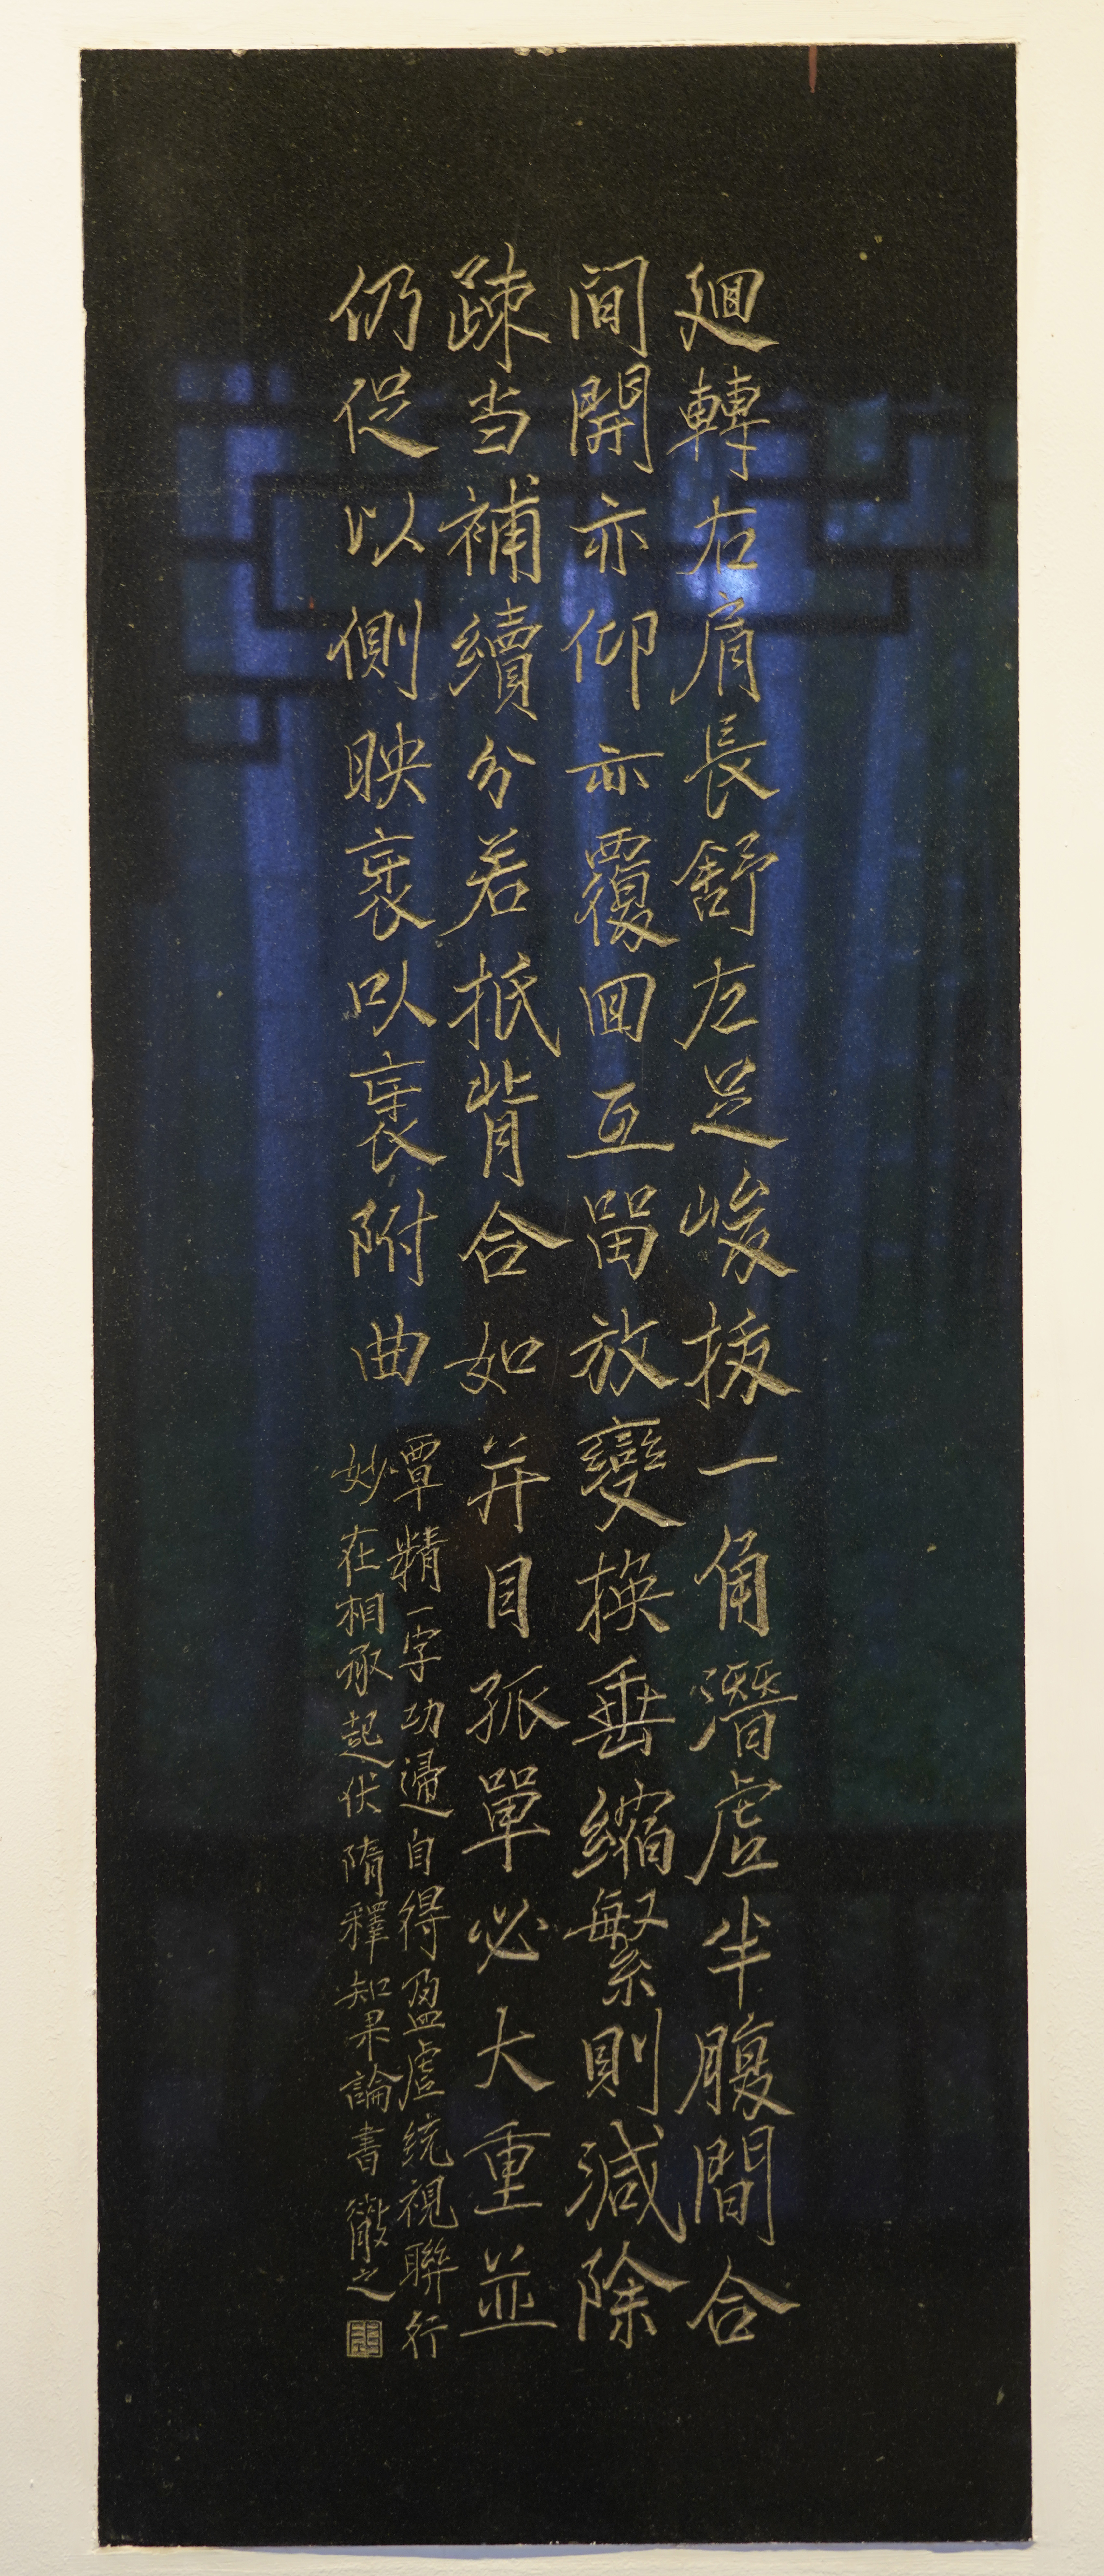 迴轉右肩長舒左足峻拔一角潛虛半腹間合
间開亦仰亦覆回互留放變換垂縮繁則減除
疎当補續分若抵背合如并目孤單必大重並
仍促以側映裏以裹附曲
覃精一字功歸自得盈虛统視聯行
妙在相承起伏隋釋知果論書 徹之